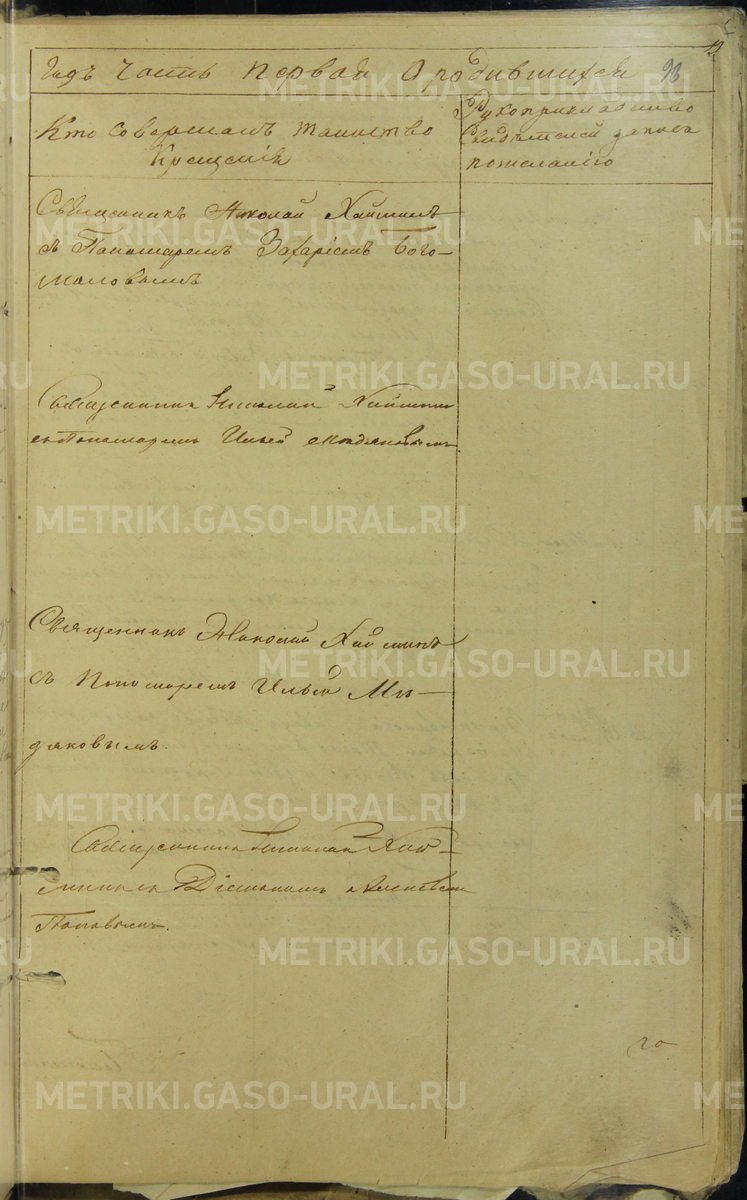 годъ Часть Первая о родившихся 98
Кто совершалъ таинство
Крещенія
Рукоприкладство
Свидѣтелей записи
по желанію
Священникъ Николай Хайминъ
съ Пономаремъ Захаріемъ Бого-
моловымъ
Священникъ Николай Хайминъ
съ Пономаремъ Ильей
Священникъ Николай Хайминъ
съ Пономаремъ Ильей Ми-
дяковымъ.
Священникъ Николай Хай-
минъ съ Діакономъ Алексѣемъ
Поповымъ.
METRIKI.GASO-URAL.RU